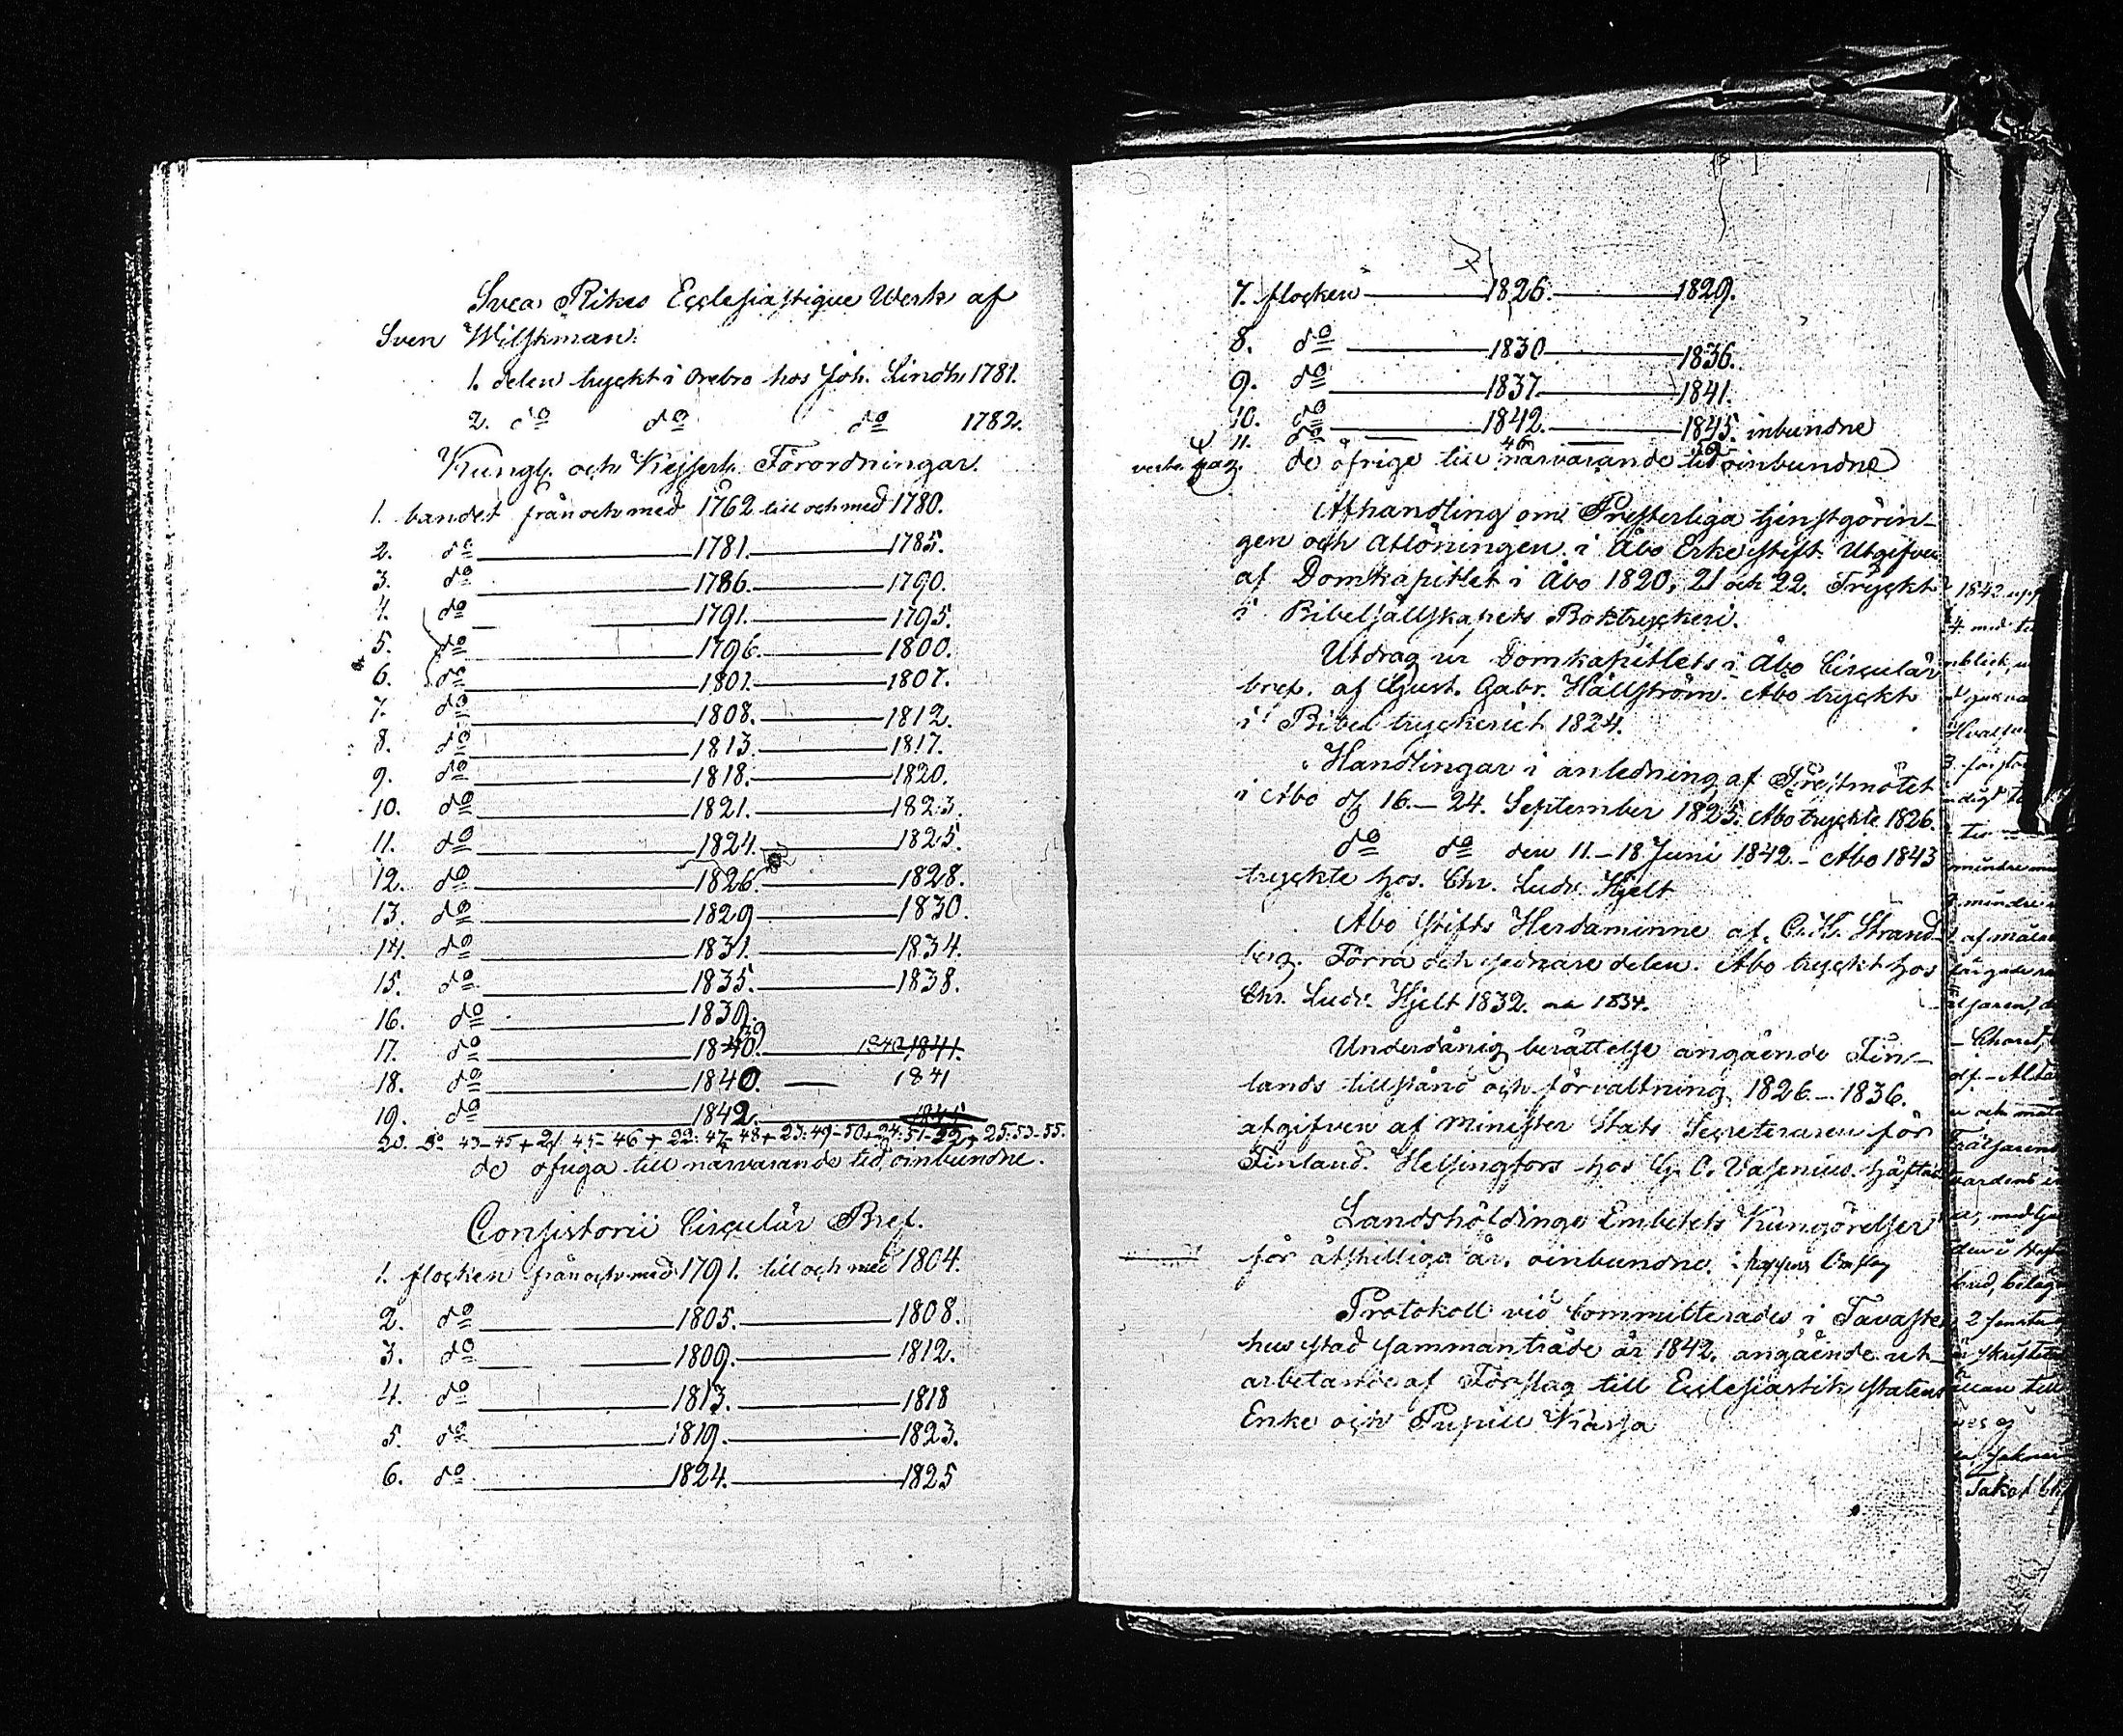 Svea Rikes Ecclesiastique Werk af
Sven Wilskman.
1. delen tryckt i Örebro hos Joh. Lindh 1781.
2. do do do 1782.
Kungl. och Kejserl. Förordningar.
1. bandet från och med 1762 till och med 1780.
2. do 1781. 1785.
3. do 1786. 1790.
4. do 1791. 1795.
5. do 1796. 1800.
6. do 1801. 1807.
7. do 1808. 1812.
8. do 1813. 1817.
9. do 1818. 1820.
10. do 1821. 1823.
11. do 1824. 1825.
12. do 1826. 1828.
13. do 1829 1830.
14. do 1831. 1834.
15. do 1835. 1838.
16. do 1839.
17. do 1840. 39 1840 1841.
18. do 1840. — 1841
19. do 1842. 1845
20. do 43-45 + 21. 45-46 + 22: 47-48 + 23: 49-50 + 24: 51-52 + 25. 53-55.
de öfriga till närvarande tid oinbundne.
Consistorii Circulär Bref.
1. flocken från och med 1791. till och med 1804.
2. do 1805. 1808.
3. do 1809. 1812.
4. do 1813. 1818
5. do 1819. 1823.
6. do 1824. 1825
7. flocken 1826. 1829.
8. do 1830 1836.
9. do 1837. 1841.
10. do 1842. 1845. inbundne
11. do 46 — 50
de öfrige till närvarande tid oinbundne
Afhandling om Presterliga tjenstgörin-
gen och aflöningen i Åbo Erkestift. Utgifven
af Domkapitlet i Åbo 1820, 21 och 22. Tryckt
i Bibelsällskapets Boktryckeri.
Utdrag ur Domkapitlets i Åbo Circulär
bref. af Gust. Gabr. Hällström. Åbo tryckt
i Bibel tryckeriet 1824.
Handlingar i anledning af Prestmötet
i Åbo d. 16.- 24. September 1825. Åbo tryckte 1826.
do do den 11.-18 Juni 1842.- Åbo 1843
tryckte hos. Chr. Ludv. Hjelt
Åbo Stifts Herdaminne af. C. H. Strand-
berg. Förra och sednare delen. Åbo tryckt hos
Chr. Ludv. Hjelt 1832. 1834.
Underdånig berättelse angående Fin-
lands tillstånd och förvaltning 1826.- 1836.
afgifven af Minister Stats Secreteraren för
Finland. Helsingfors hos G. O. Vasenius. häftad
Landshöfdinge Embetets Kungörelser
för åtskilliga år. oinbundne. i pappers Omslag
Protokoll vid Committerades i Tavaste
hus stad sammanträde år 1842. angående ut-
arbetande af Förslag till Ecclesiastik statens
Enke och Pupill Kassa